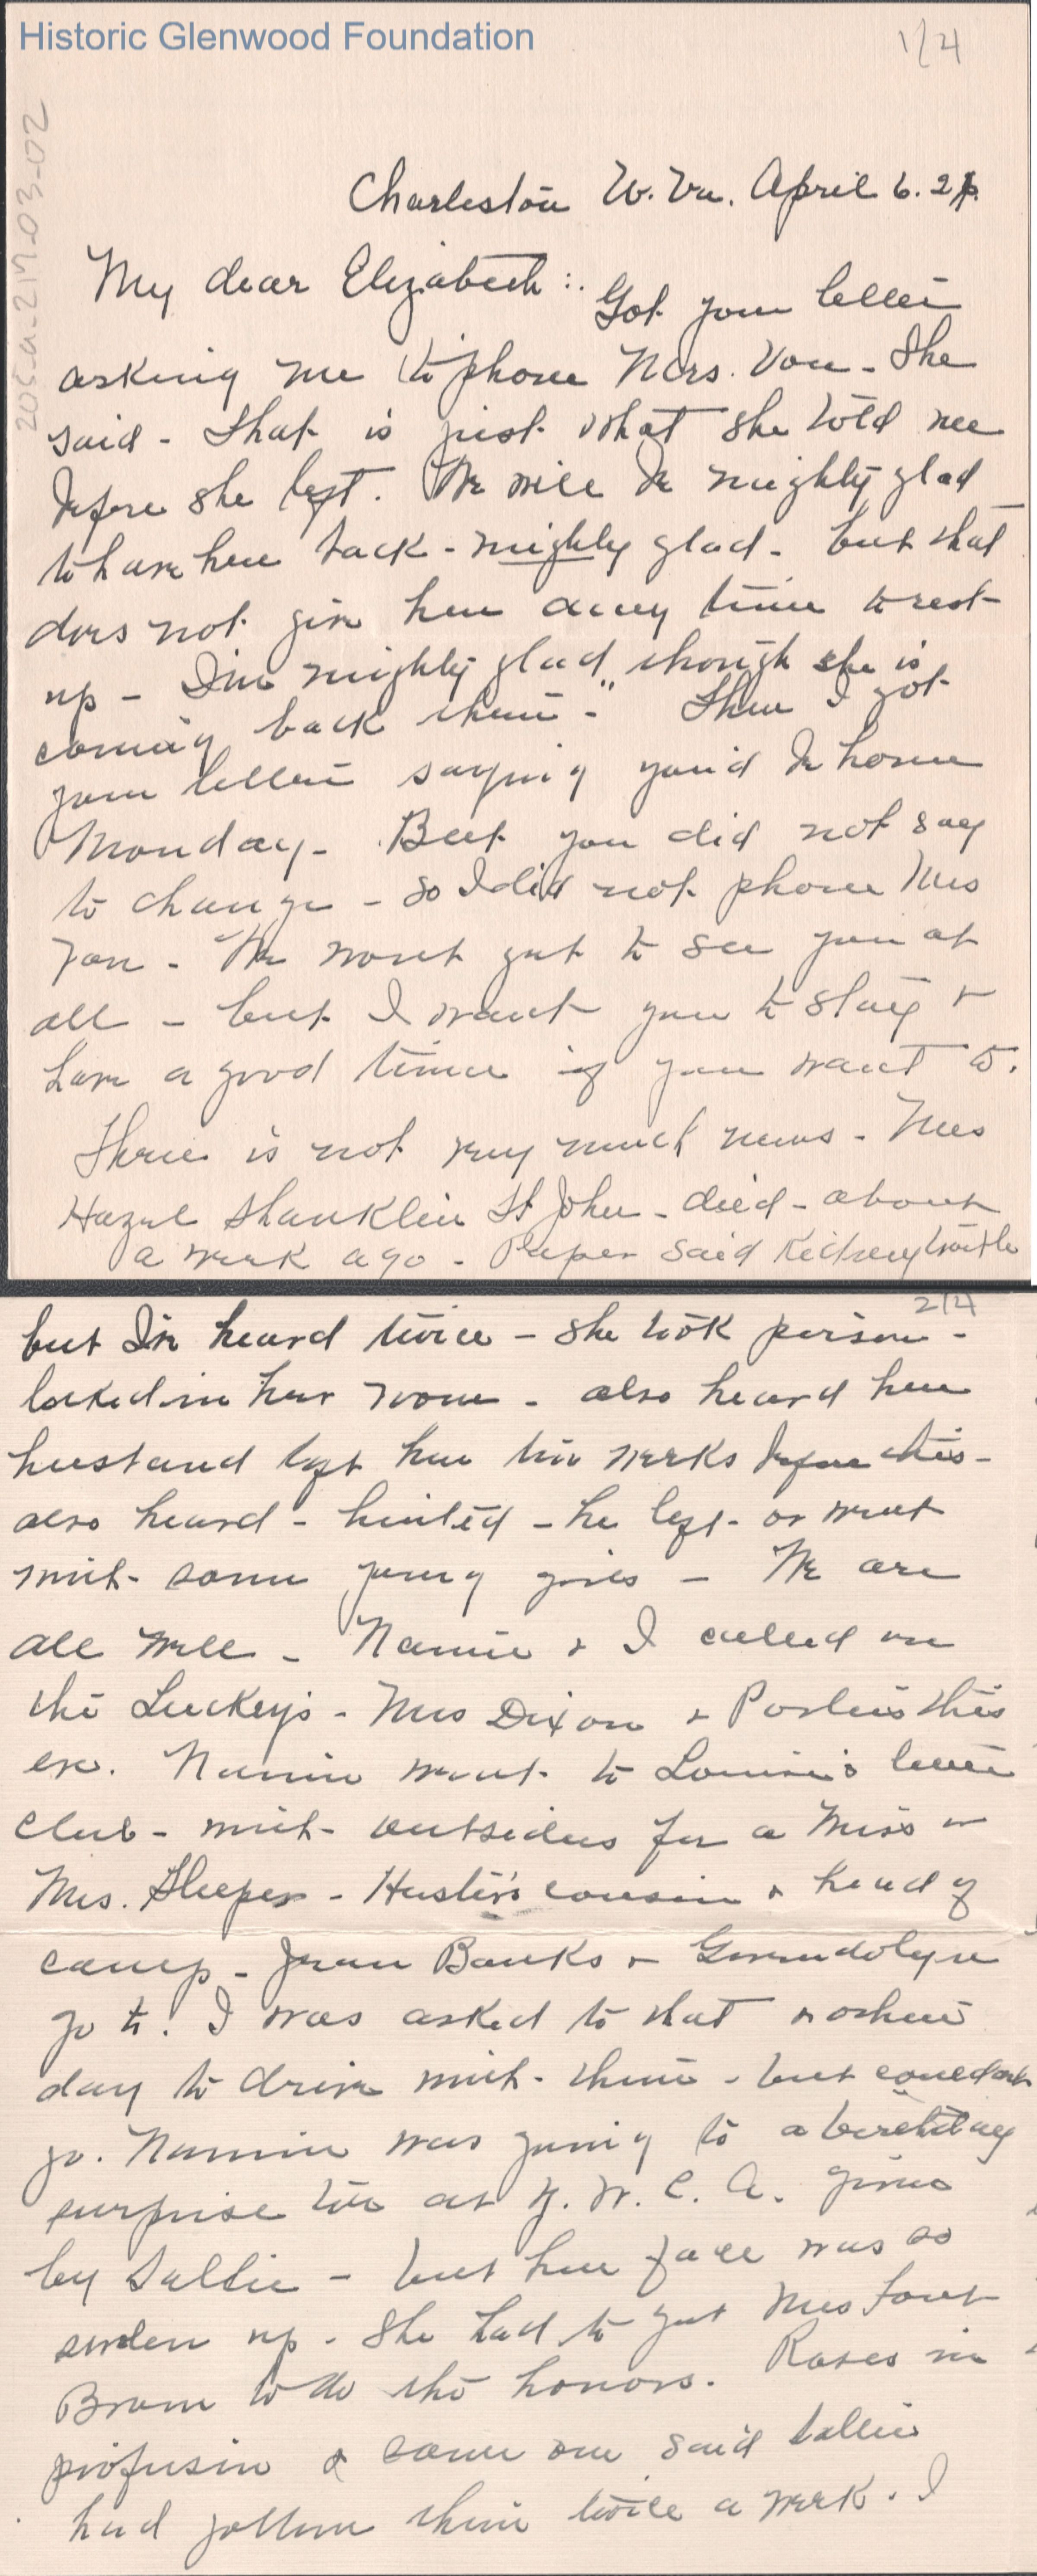 Historic Glenwood Foundation
1/4
205-a-217-03-02
Charleston W. Va. April 6. 2
My dear Elizabeth:. Got your letter
asking me to phone Mrs. Van - She
said - That is just what she told me
before she left. We will be mighty glad
to have her back - mighty glad - but that
does not give her any time to rest
up - I'm mighty glad though she is
coming back then -" Then I got
your letter saying you'd be home
Monday - But you did not say
to change - so I did not phone Mrs
Van - We wont get to see you at
all - but I want you to stay +
have a good time if you want to.
There is not very much news - Mrs
Hazel Shanklin St John - died - about
a week ago - Paper said Kidney trouble
2/4
but I've heard twice - she took poison -
locked in her room - also heard her
husband left her two weeks before this -
also heard - hinted - he left - or went
with some young girls - We are
all well - Nannie + I called on
the Luckeys - Mrs Dixon + Porters this
eve. Nannie went to Louise's
Club - with outsiders for a Miss or
Mrs. Sleeper - cousin + head of
camp - Jean Banks + Gwendolyn
go to! I was asked to that + other
day to drive with them - but could not
go. Nannie was going to a birthday
surprise tea at Y. W. C. A. given
by Sallie - but her face was so
swolen up - She had to get Mrs
Brown to do the honors. Roses in
profusion & some one said Sallie
had gotten them twice a week. I